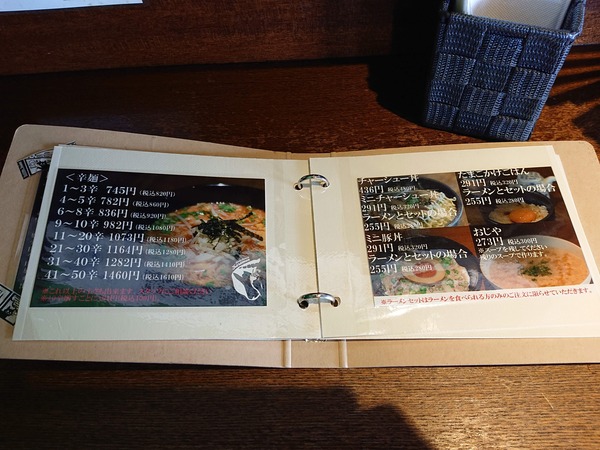 <辛麺>
1～3辛 745円(税込820円)
4～5辛 782円(税込860円)
6～8辛 836円(税込920円)
9～10辛 982円(税込1080円)
11～20辛 1073円(税込1180円)
21～30辛 1164円(税込1280円)
31～40辛 1282円(税込1410円)
41～50辛 1460円(税込1610円)
チャーシュー丼
436円
ミニチャーシュー丼
291円(税込320円)
ラーメンとセットの場合
255円
ミニ豚丼
291円(税込320円)
ラーメンとセットの場合
255円(税込280円)
たまごかけごはん
291円(税込320円)
ラーメンとセットの場合
255円(税込280円)
おじや
273円(税込300円)
※スープを残してください
残りのスープで作ります。
※ラーメンセットはラーメンを食べられる方のみのご注文に限らせていただきます。